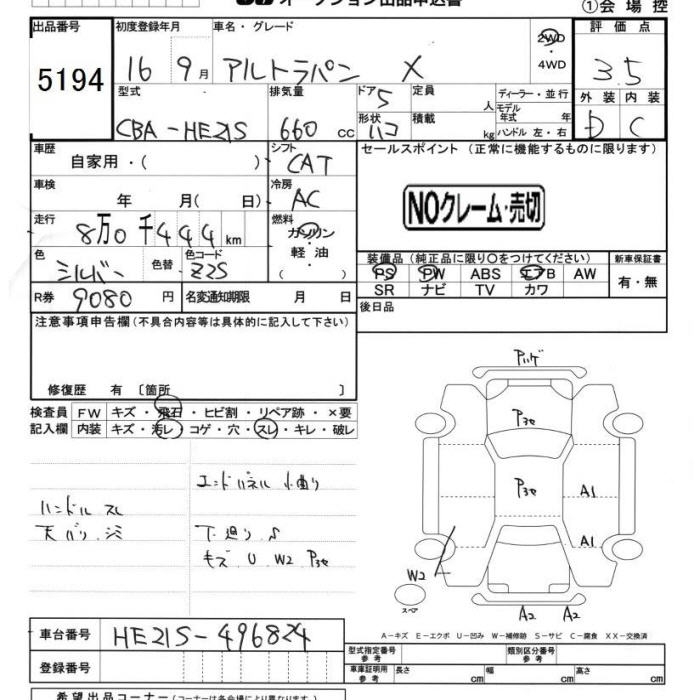 オークション出品申込書
①会場控
出品番号 初度登録年月 車名・グレード 評価点
5194 16 9月 アルトラパン X 2WD・4WD 3.5
型式 排気量 ドア 5 定員 人 ディーラー・並行 外装 内装
CBA-HE21S 660 cc 形状 ハコ 積載 kg モデル年式 年 ハンドル 左・右 D C
車歴 自家用・( ) シフト CAT セールスポイント (正常に機能するものに限ります)
車検 年 月( 日) 冷房 AC
NOクレーム・売切
走行 8万0千444km 燃料 ガソリン 軽油 ( )
色 シルバー 色替 色コード Z2S
装備品 (純正品に限り○をつけてください) 新車保証書
PS PW ABS エアB AW 有・無
SR ナビ TV カワ
R券 9080円 名変通知期限 月 日 後日品
注意事項申告欄 (不具合内容等は具体的に記入して下さい)
修復歴 有 〔箇所 〕
検査員 FW キズ・飛石・ヒビ割・リペア跡・×要
記入欄 内装 キズ・汚レ・コゲ・穴・スレ・キレ・破レ
エンドパネル 小曲り
ハンドル スレ
天バリ シミ
下廻り S
キズ U W2 Pヨセ
Pハゲ
Pヨセ
Pヨセ
A1
A1
W2
スペア
A2 A2
A-キズ E-エクボ U-凹み W-補修跡 S-サビ C-腐食 XX-交換済
車台番号 HE21S-496824
型式指定番号 参考 類別区分番号 参考
登録番号 車庫証明用 参考 長さ cm 幅 cm 高さ cm
希望出品コーナー (コーナーは各会場により異なります)